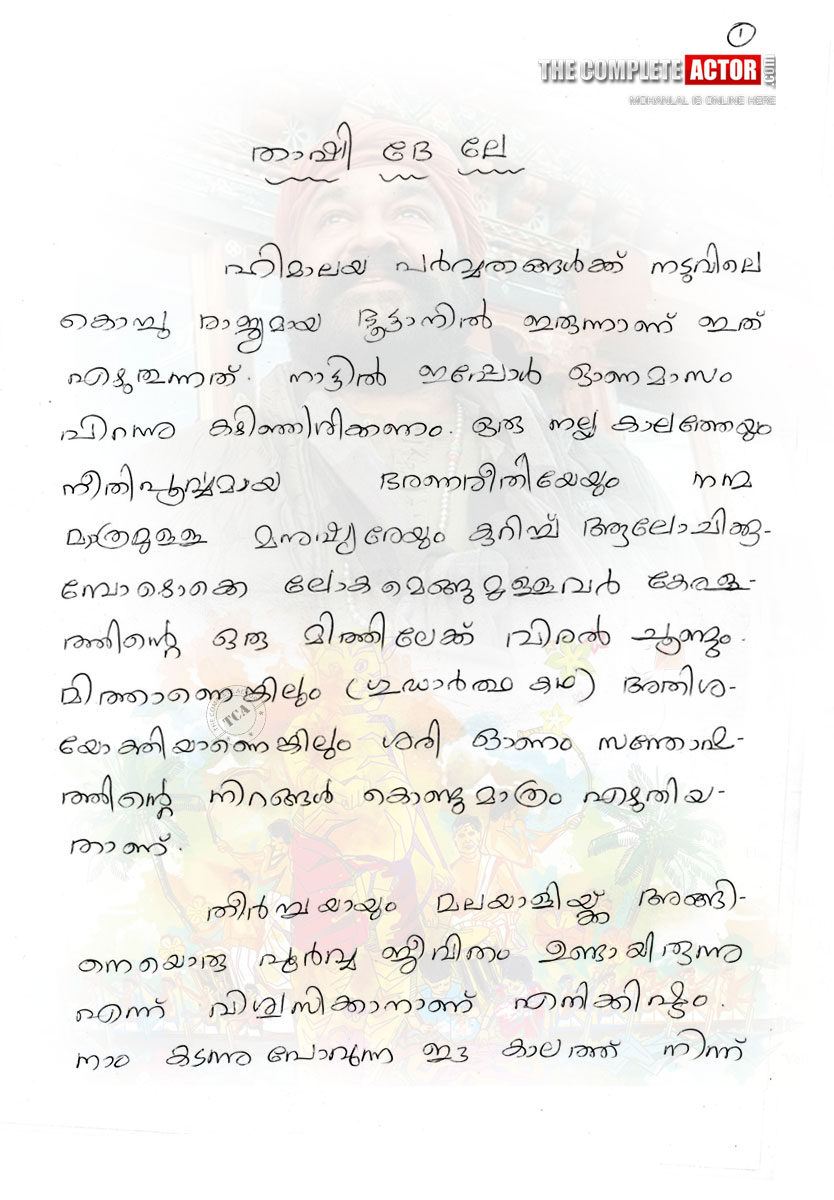 ൧
THE COMPLETE ACTOR .com
MOHANLAL IS ONLINE HERE
താഷി ദേ ലേ
ഹിമാലയ പർവ്വതങ്ങൾക്ക് നടുവിലെ
കൊച്ചു രാജ്യമായ ഭൂട്ടാനിൽ ഇരുന്നാണ് ഇത്
എഴുതുന്നത്. നാട്ടിൽ ഇപ്പോൾ ഓണമാസം
പിറന്നു കഴിഞ്ഞിരിക്കണം. ഒരു നല്ല കാലത്തേയും
നീതിപൂർവ്വമായ ഭരണരീതിയേയും നന്മ
മാത്രമുള്ള മനുഷ്യരേയും കുറിച്ച് ആലോചിക്കു-
മ്പോഴൊക്കെ ലോകമെങ്ങുമുള്ളവർ കേരള-
ത്തിന്റെ ഒരു മിത്തിലേക്ക് വിരൽ ചൂണ്ടും.
മിത്താണെങ്കിലും (ഗൂഢാർത്ഥ കഥ) അതിശ-
യോക്തിയാണെങ്കിലും ശരി ഓണം സന്തോഷ-
ത്തിന്റെ നിറങ്ങൾ കൊണ്ടുമാത്രം എഴുതിയ-
താണ്.
തീർച്ചയായും മലയാളിയ്ക്ക് അങ്ങി-
നെയൊരു പൂർവ്വ ജീവിതം ഉണ്ടായിരുന്നു
എന്ന് വിശ്വസിക്കാനാണ് എനിക്കിഷ്ടം.
നാം കടന്നുപോവുന്ന ഈ കാലത്ത് നിന്ന്
TCA